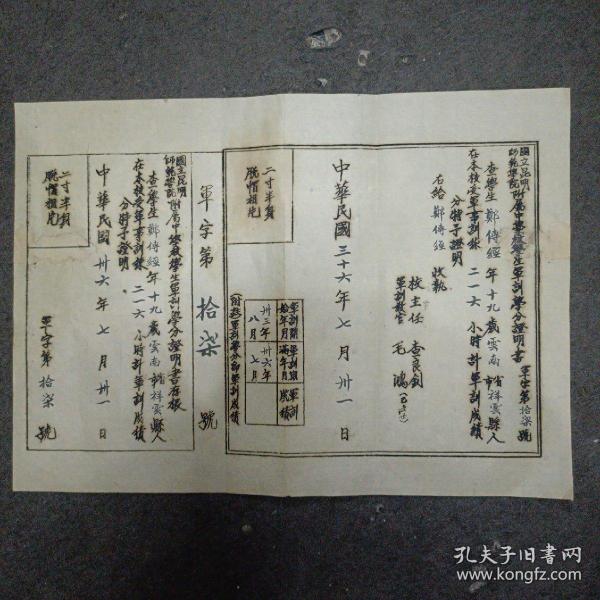 國立昆明師範學院附屬中學校學生軍訓學分證明書 軍字第拾柒號
查學生鄭傳經年十九歲雲南省祥雲縣市人
在本校受軍事訓練二一六小時計軍訓成績
分特予證明
右給鄭傳經收執
校主任 查良釗
軍訓教官 毛鴻
中華民國三十六年七月卅一日
二寸半身
脫帽相片
軍訓開始年月 軍訓期滿年月 軍訓成績
卅三年八月 卅六年七月
(附註)軍訓學分即軍訓成績
軍字第拾柒號
國立昆明師範學院附屬中學校學生軍訓學分證明書存根
查學生鄭傳經年十九歲雲南省祥雲縣市人
在本校受軍事訓練二一六小時計軍訓成績
分特予證明
中華民國卅六年七月卅一日
軍字第拾柒號
二寸半身
脫帽相片
孔夫子旧書网
www.kongfz.com